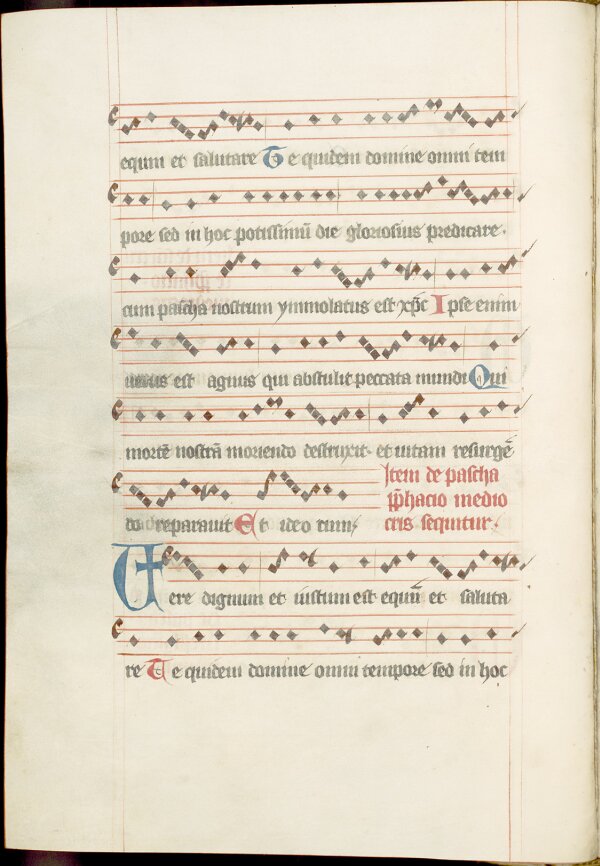 equm et salutare Te quidem domine omni tem
pore sed in hoc potissimū die gloriosius predicare.
cum pascha nostrum ymmolatus est xp̄c Ipse enim
uerus est agnus qui abstulit peccata mundi Qui
mortē nostrā moriendo destruxit. et uitam resurgē
do reparauit Et ideo cum
Item de pascha
p̄phacio medio
cris sequitur.
Uere dignum et iustum est equū et saluta
re Te quidem domine omni tempore sed in hoc